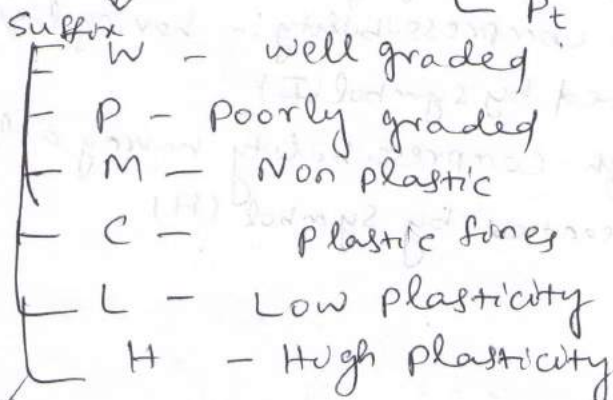 Pt
Suffix
W - well graded
P - Poorly graded
M - Non plastic
C - plastic fines
L - Low plasticity
H - High plasticity